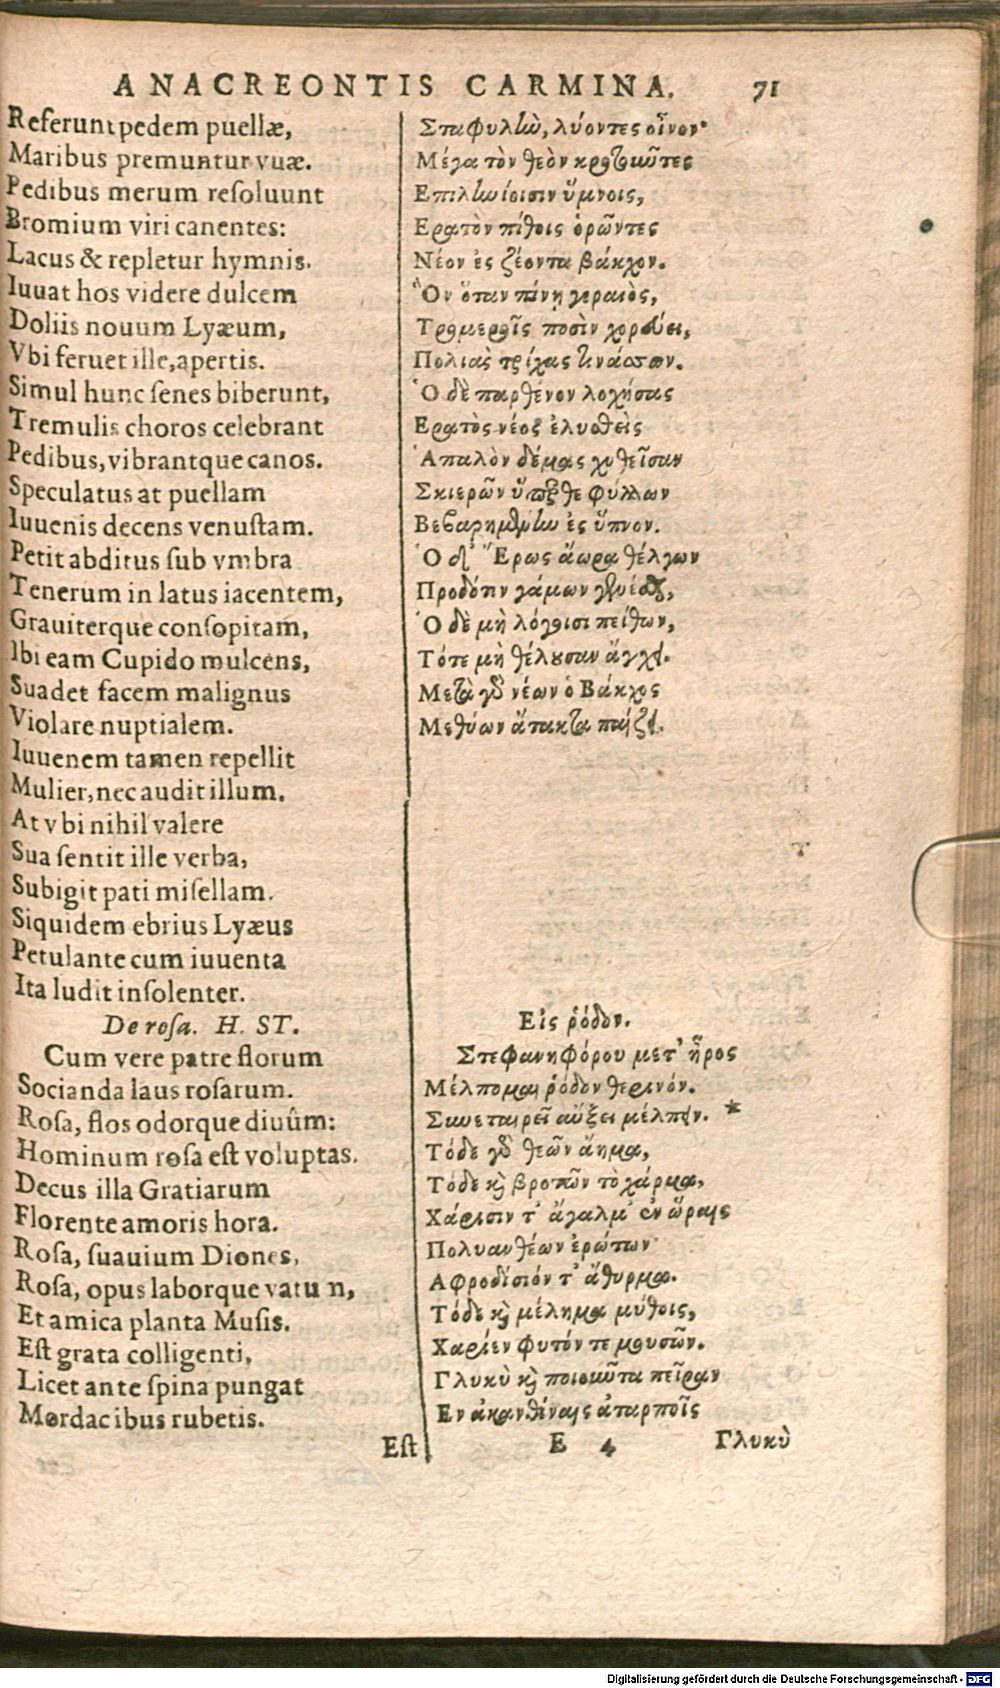 ANACREONTIS CARMINA. 71
Referunt pedem puellæ,
Maribus premuntur vuæ.
Pedibus merum reſoluunt
Bromium viri canentes:
Lacus & repletur hymnis.
Iuuat hos videre dulcem
Doliis nouum Lyæum,
Vbi feruet ille, apertis.
Simul hunc ſenes biberunt,
Tremulis choros celebrant
Pedibus, vibrantque canos.
Speculatus at puellam
Iuuenis decens venuſtam.
Petit abditus ſub vmbra
Tenerum in latus iacentem,
Grauiterque conſopitam,
Ibi eam Cupido mulcens,
Suadet facem malignus
Violare nuptialem.
Iuuenem tamen repellit
Mulier, nec audit illum.
At vbi nihil valere
Sua ſentit ille verba,
Subigit pati miſellam.
Siquidem ebrius Lyæus
Petulante cum iuuenta
Ita ludit inſolenter.
De roſa. H. ST.
Cum vere patre florum
Socianda laus roſarum.
Roſa, flos odorque diuûm:
Hominum roſa eſt voluptas.
Decus illa Gratiarum
Florente amoris hora.
Roſa, suauium Diones,
Roſa, opus laborque vatu n,
Et amica planta Muſis.
Eſt grata colligenti,
Licet ante ſpina pungat
Mordacibus rubetis.
Eſt
Σταφυλὼ, λύοντες οἶνον·
Μέγα τὸν θεὸν κροτοιῶτες
Επιληνίοισιν ὕμνοις,
Ερατὸν πίθοις ὁρῶντες
Νέον ἐς ζέοντα βάκχον.
Ὃν ὅταν πίνῃ γεραιὸς,
Τρομεροῖς ποσὶν χορεύει,
Πολιὰς τρίχας τινάσσων.
Ὁ δὲ παρθένον λοχήσας
Ερατὸς νέος ἐλυσθεὶς
Ἁπαλὸν δέμας χυθεῖσαν
Σκιερῶν ὕπερθε φύλλων
Βεβαρημένην ἐς ὕπνον.
Ὁ δ' Ἔρως ἄωρα θέλγων
Προδότιν γάμων γενέσθαι,
Ὁ δὲ μὴ λόγοισι πείθων,
Τότε μὴ θέλουσαν ἄγχει.
Μετὰ γὸ νέων ὁ Βάκχος
Μεθύων ἄτακτα παίζει.
Εἰς ῥόδον.
Στεφανηφόρου μετ' ἦρος
Μέλπομαι ῥόδον θερινόν.
Συνεταιρεῖ αὔξει μέλπην. *
Τόδε γὸ θεῶν ἄημα,
Τόδε καὶ βροτῶν τὸ χάρμα,
Χάρισιν τ' ἄγαλμ' ἐν ὥραις
Πολυανθέων ἐρώτων
Αφροδίσιόν τ' ἄθυρμα.
Τόδε καὶ μέλημα μύθοις,
Χαρίεν φυτόν τε μουσῶν.
Γλυκὺ καὶ ποιοιῶτα πεῖραν
Εν ἀκανθίναις ἀταρποῖς
E 4 Γλυκὺ
Digitalisierung gefördert durch die Deutsche Forschungsgemeinschaft - DFG